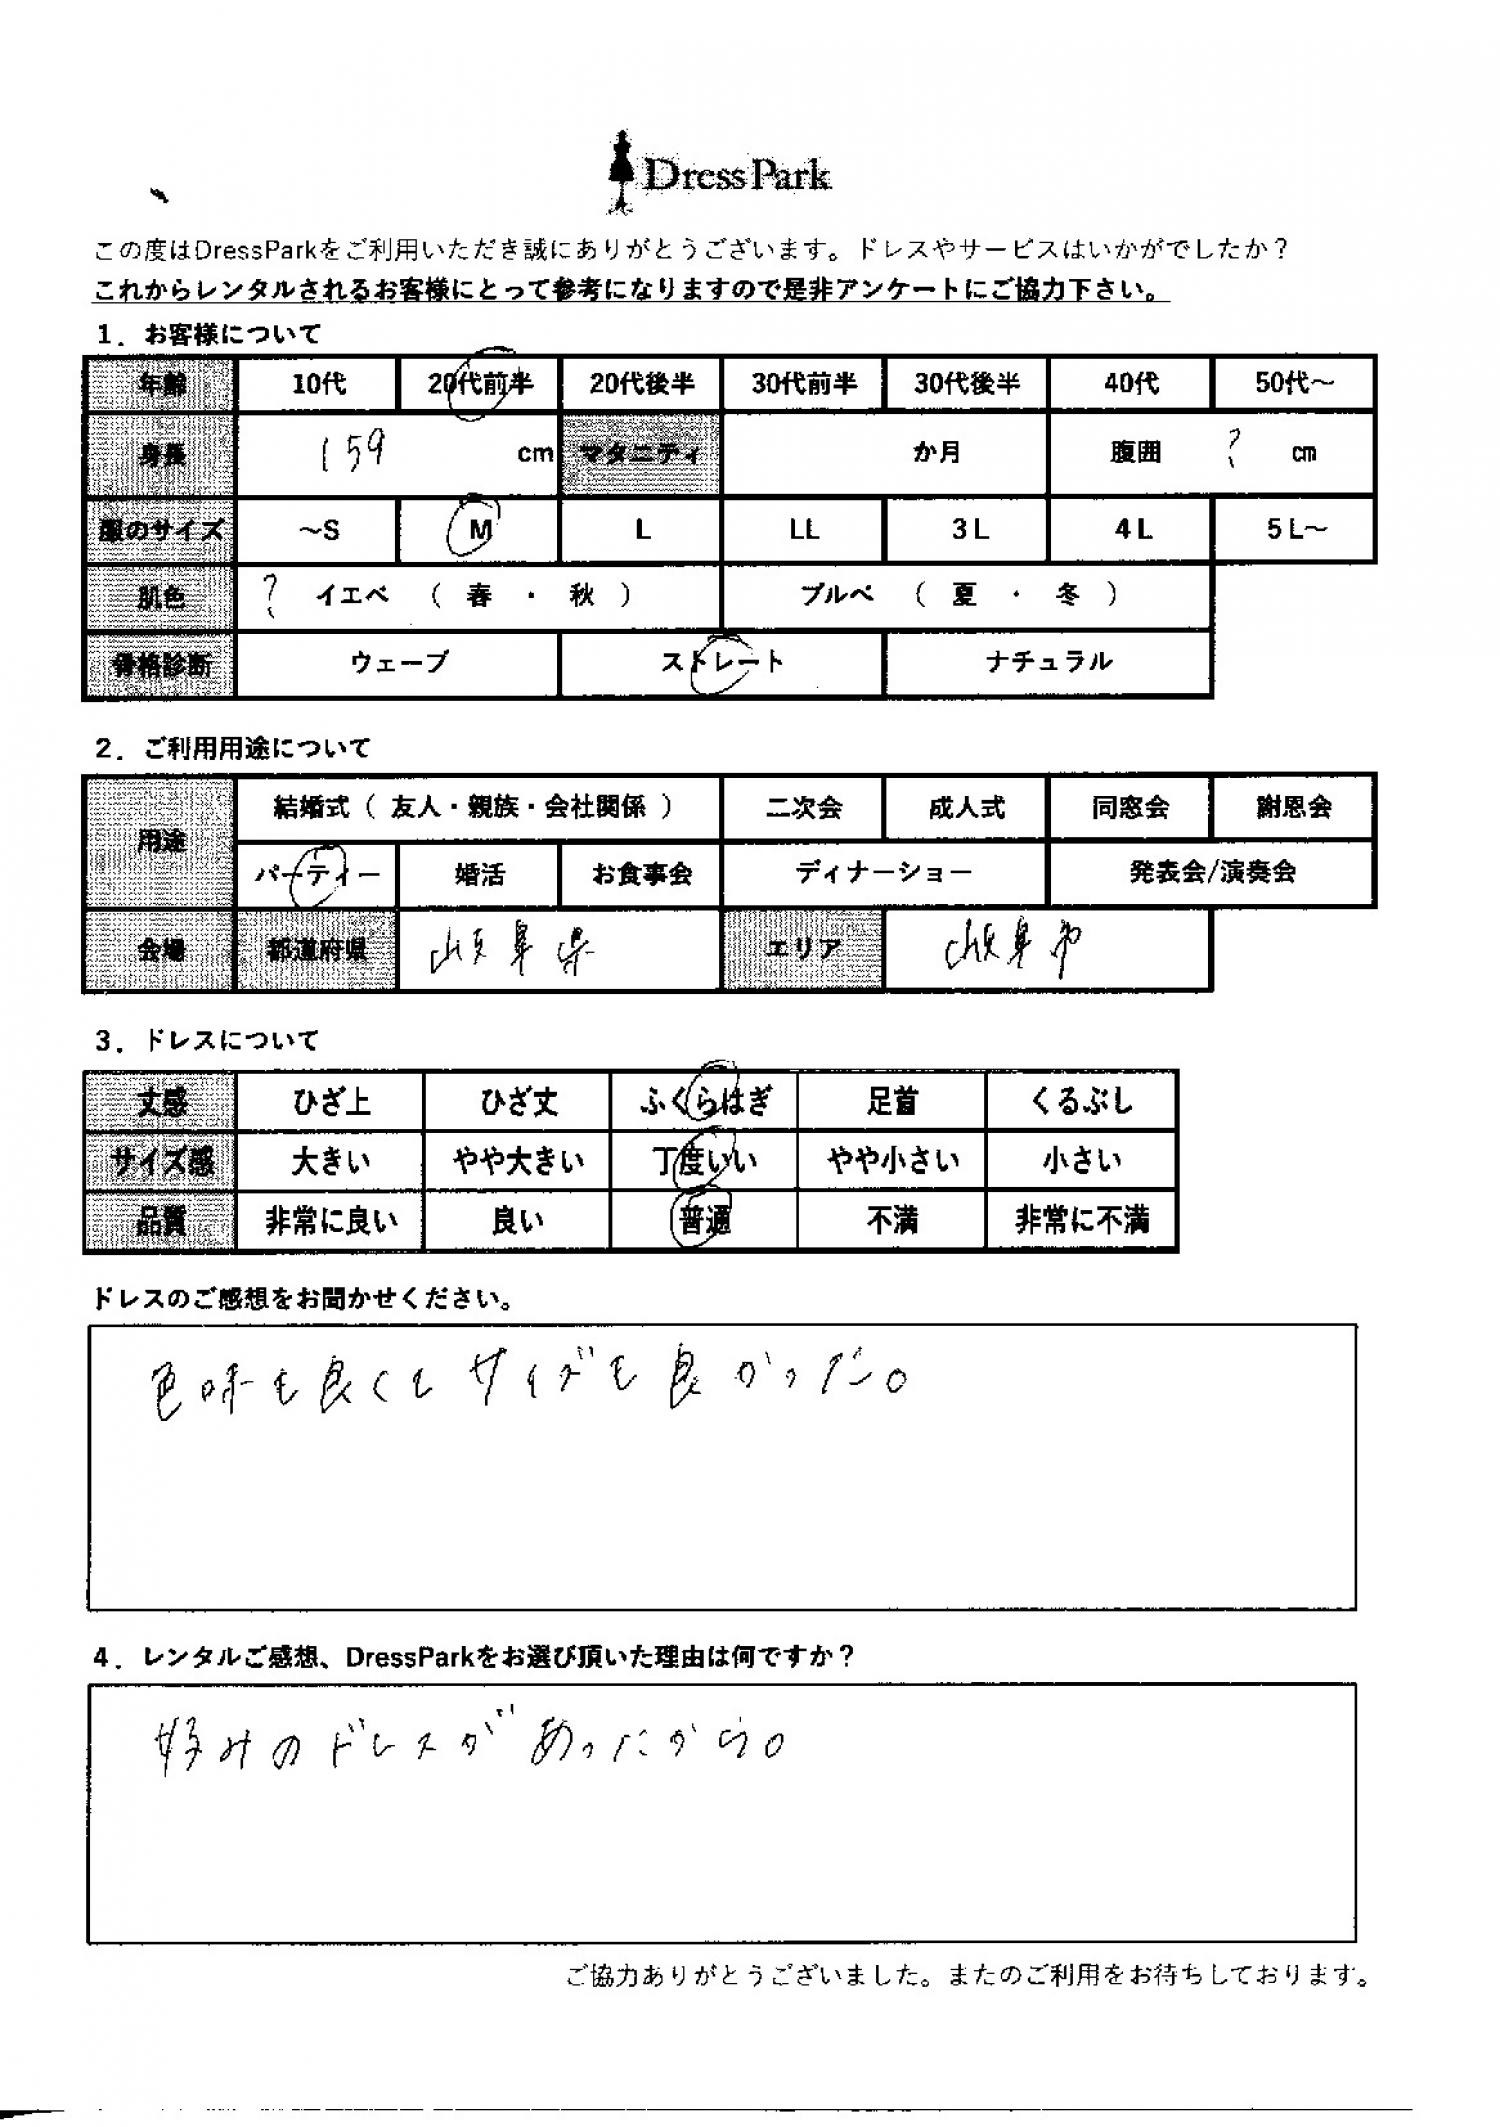 DressPark
この度はDressParkをご利用いただき誠にありがとうございます。ドレスやサービスはいかがでしたか？
これからレンタルされるお客様にとって参考になりますので是非アンケートにご協力下さい。
1．お客様について
年齢 10代 20代前半 20代後半 30代前半 30代後半 40代 50代～
身長 159 cm マタニティ か月 腹囲 ? cm
服のサイズ ～S M L LL 3L 4L 5L～
肌色 ? イエベ （ 春 ・ 秋 ） ブルベ （ 夏 ・ 冬 ）
骨格診断 ウェーブ ストレート ナチュラル
2．ご利用用途について
用途 結婚式（ 友人・親族・会社関係 ） 二次会 成人式 同窓会 謝恩会
パーティー 婚活 お食事会 ディナーショー 発表会/演奏会
会場 都道府県 岐阜県 エリア 岐阜市
3．ドレスについて
丈感 ひざ上 ひざ丈 ふくらはぎ 足首 くるぶし
サイズ感 大きい やや大きい 丁度いい やや小さい 小さい
品質 非常に良い 良い 普通 不満 非常に不満
ドレスのご感想をお聞かせください。
色味も良くもサイズも良かった。
4．レンタルご感想、DressParkをお選び頂いた理由は何ですか？
好みのドレスがあったから。
ご協力ありがとうございました。またのご利用をお待ちしております。